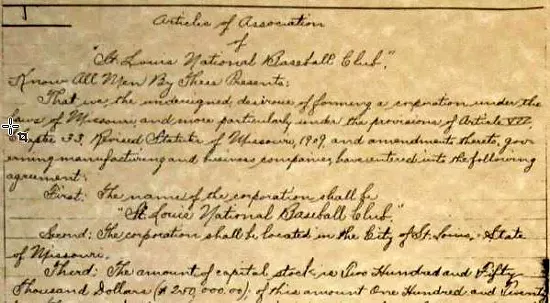 Articles of Association
of
"St. Louis National Baseball Club."
Know All Men By These Presents:
That we, the undersigned, desirous of forming a corporation under the
laws of Missouri, and more particularly under the provisions of Article VII
Chapter 33, Revised Statutes of Missouri, 1909, and amendments thereto, gov-
erning manufacturing and business companies, have entered into the following
agreement:
First: The name of the corporation shall be
"St. Louis National Baseball Club."
Second: The corporation shall be located in the City of St. Louis, State
of Missouri.
Third: The amount of capital stock is Two Hundred and Fifty
Thousand Dollars ($250,000.00); of this amount One Hundred and Twenty